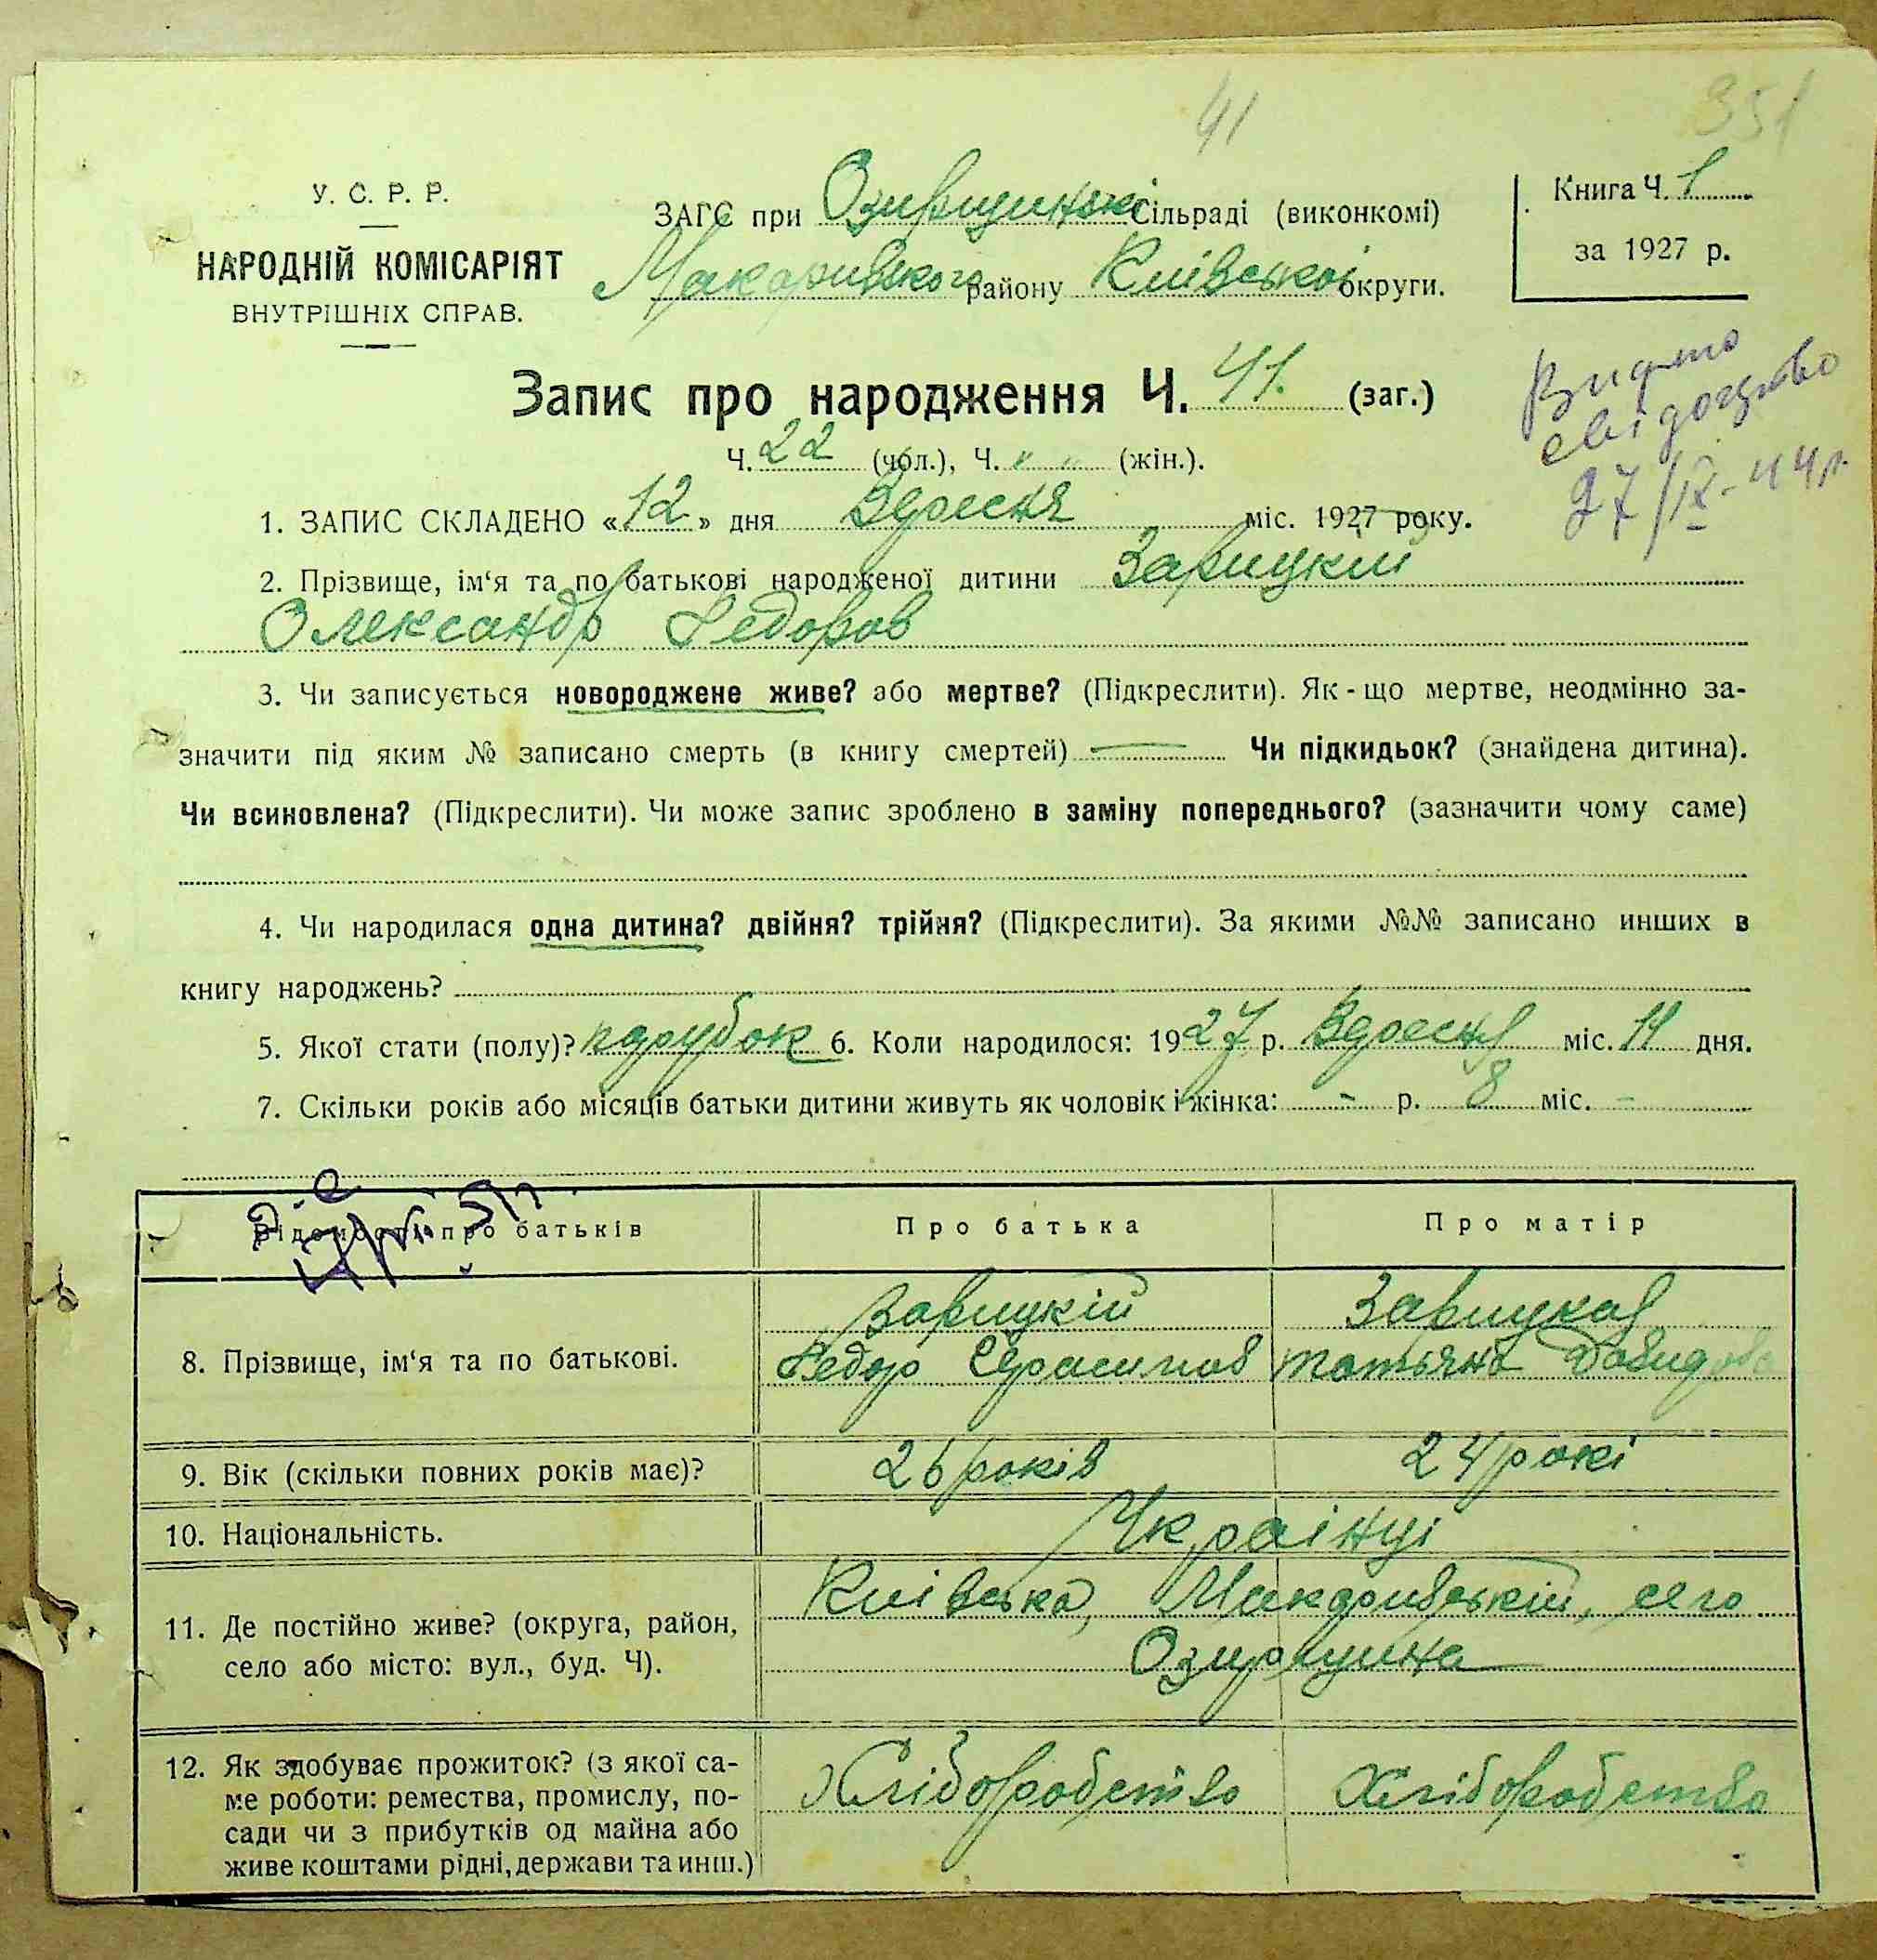 41
351
У. С. Р. Р.
НАРОДНІЙ КОМІСАРІЯТ
ВНУТРІШНІХ СПРАВ.
ЗАГС при Озирщинські сільраді (виконкомі)
Макарівского району Київської округи.
Книга Ч. 1
за 1927 р.
Запис про народження Ч. 41. (заг.)
Ч. 22 (чол.), Ч. " " (жін.).
Видано
свідоцтво
27/IX-44 р.
1. ЗАПИС СКЛАДЕНО «12» дня Вересня міс. 1927 року.
2. Прізвище, ім‘я та по батькові народженої дитини Зарицкій
Олександр Федоров
3. Чи записується новороджене живе? або мертве? (Підкреслити). Як-що мертве, неодмінно за-
значити під яким № записано смерть (в книгу смертей) — Чи підкидьок? (знайдена дитина).
Чи всиновлена? (Підкреслити). Чи може запис зроблено в заміну попереднього? (зазначити чому саме)
4. Чи народилася одна дитина? двійня? трійня? (Підкреслити). За якими №№ записано инших в
книгу народжень?
5. Якої стати (полу)? парубок 6. Коли народилося: 1927 р. Вересня міс. 11 дня.
7. Скільки років або місяців батьки дитини живуть як чоловік і жінка: - р. 8 міс. -
Відомості про батьків
Про батька
Про матір
8. Прізвище, ім‘я та по батькові.
Зарицкій
Федор Герасимов
Зарицкая
Татьяна Давидова
9. Вік (скільки повних років має)?
26 років
24 рокі
10. Національність.
Українці
11. Де постійно живе? (округа, район,
село або місто: вул., буд. Ч).
Київська, Макарівський, село
Озирщина
12. Як здобуває прожиток? (з якої са-
ме роботи: ремества, промислу, по-
сади чи з прибутків од майна або
живе коштами рідні, держави та инш.)
Хліборобство
Хліборобство